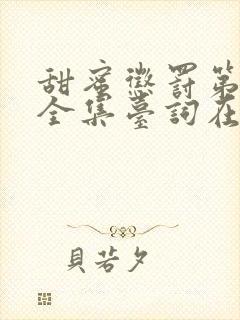 甜蜜懲罰第
全集臺詞在
貝若夕